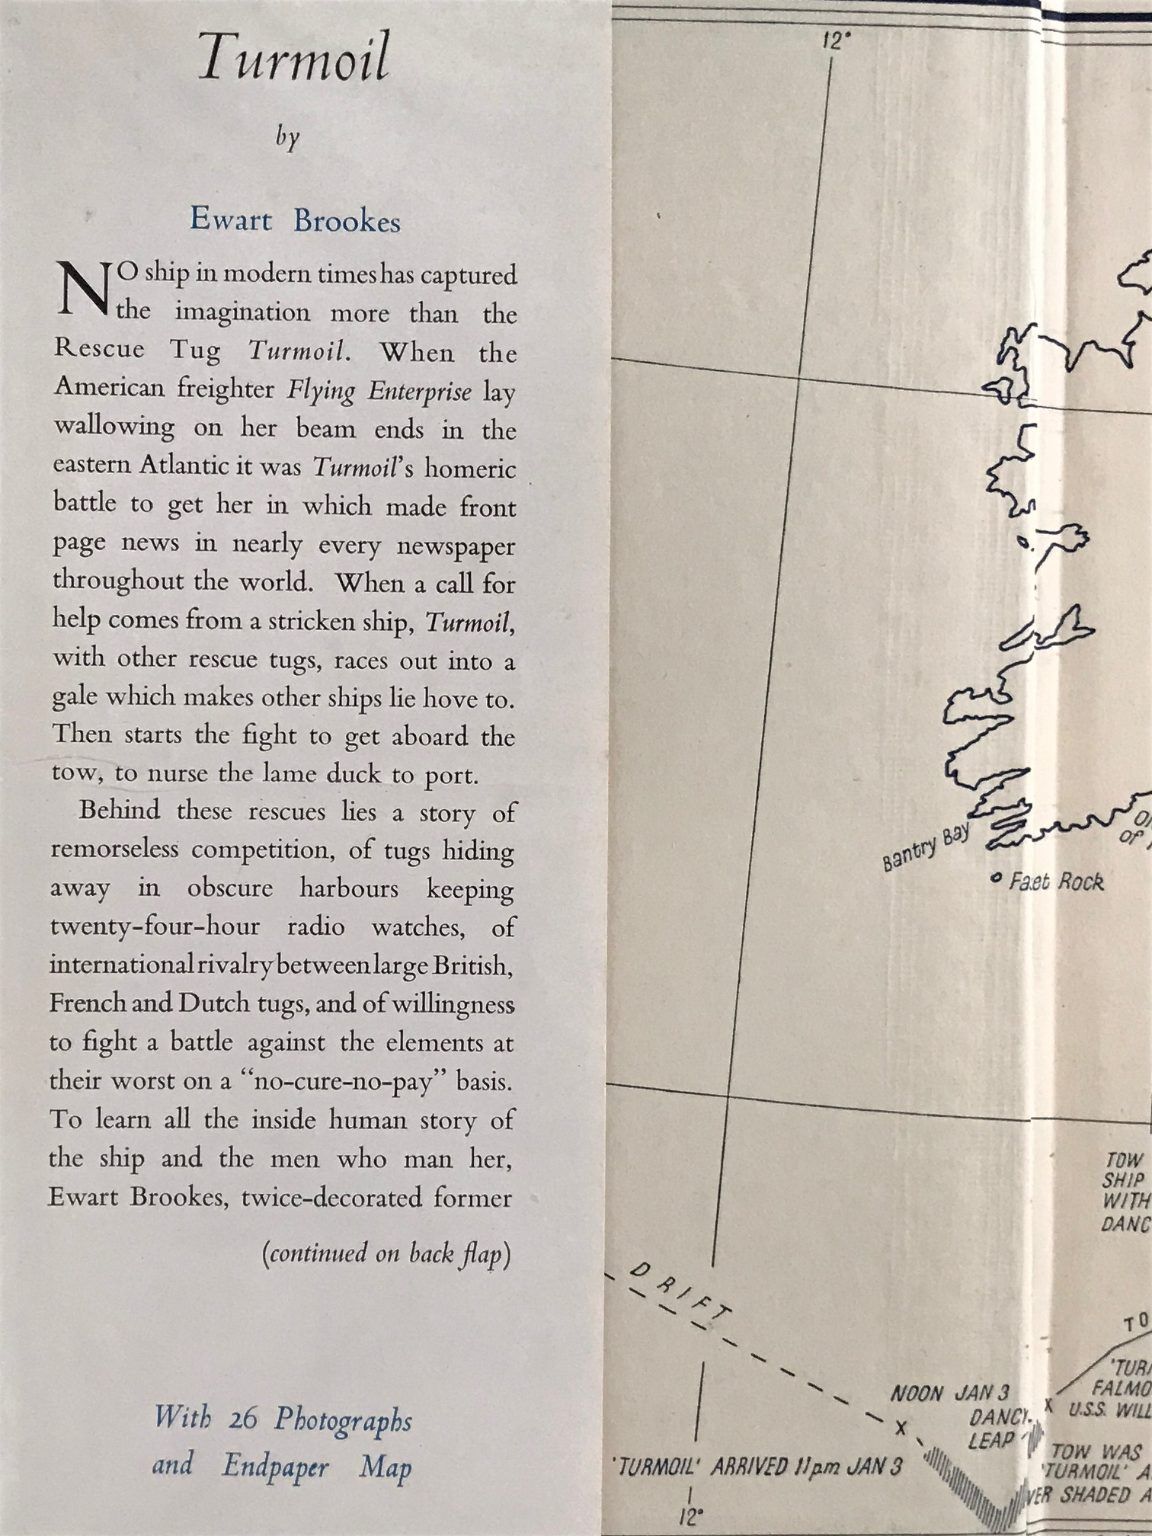 Turmoil
by
Ewart Brookes
NO ship in modern times has captured
the imagination more than the
Rescue Tug Turmoil. When the
American freighter Flying Enterprise lay
wallowing on her beam ends in the
eastern Atlantic it was Turmoil's homeric
battle to get her in which made front
page news in nearly every newspaper
throughout the world. When a call for
help comes from a stricken ship, Turmoil,
with other rescue tugs, races out into a
gale which makes other ships lie hove to.
Then starts the fight to get aboard the
tow, to nurse the lame duck to port.
Behind these rescues lies a story of
remorseless competition, of tugs hiding
away in obscure harbours keeping
twenty-four-hour radio watches, of
international rivalry between large British,
French and Dutch tugs, and of willingness
to fight a battle against the elements at
their worst on a “no-cure-no-pay” basis.
To learn all the inside human story of
the ship and the men who man her,
Ewart Brookes, twice-decorated former
(continued on back flap)
With 26 Photographs
and Endpaper Map
12°
Bantry Bay
OF
Rock
TOW
SHIP
WITH
DANC
DRIFT
TO
NOON JAN 3
DANCY
LEAP
'TUR
FALMO
U.S.S. WILL
'TURMOIL' ARRIVED 11pm JAN 3
TOW WAS
'TURMOIL' A
SHADED A
12°